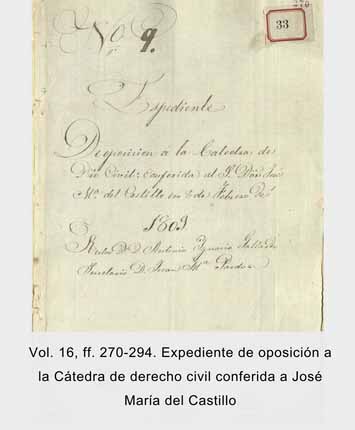 270
33
No. 9.
Expediente
De oposicion a la Catedra de
Dro Civil: conferida al Sr. Don José
Ma. del Castillo en 6 de Febrero de
1803
Rector D. D. Antonio Ygnacio
Secretario D. Juan Ma. Pardo
Vol. 16, ff. 270-294. Expediente de oposición a
la Cátedra de derecho civil conferida a José
María del Castillo